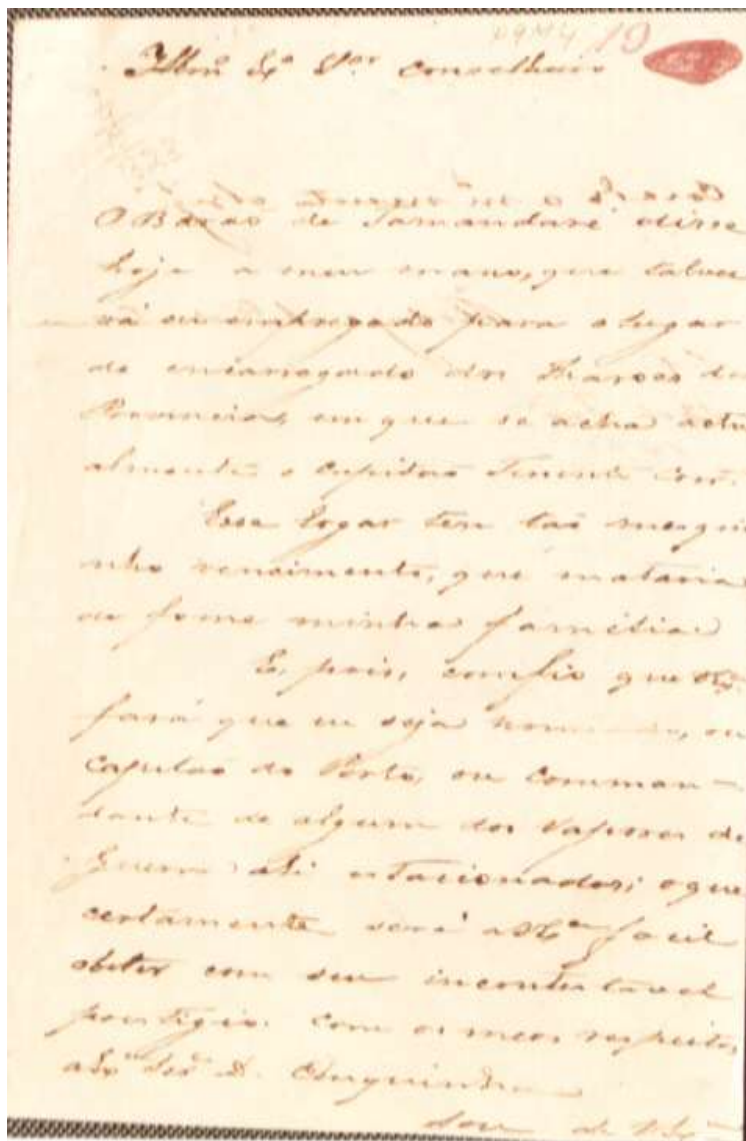 19
Illmo Exo Snr Conselheiro
O Barão de Tamandaré disse
hoje a meu mano, que talvez
vá eu empregado para o lugar
de encarregado dos Pharoes da
Provincia, em que se acha actu
almente o Capitão Tenente
Esse logar tem tão mesqui
nho rendimento, que mataria
de fome minha familia
E, pois, confio que VEx
fará que eu seja nomeado, ou
Capitão do Porto, ou Comman-
dante de algum dos Vapores de
Guerra ali estacionados; o que
certamente será a VExa facil
obter com seu incontestavel
prestigio. Com os meos respeitos
a Exa Sra D.
Sou de VEx